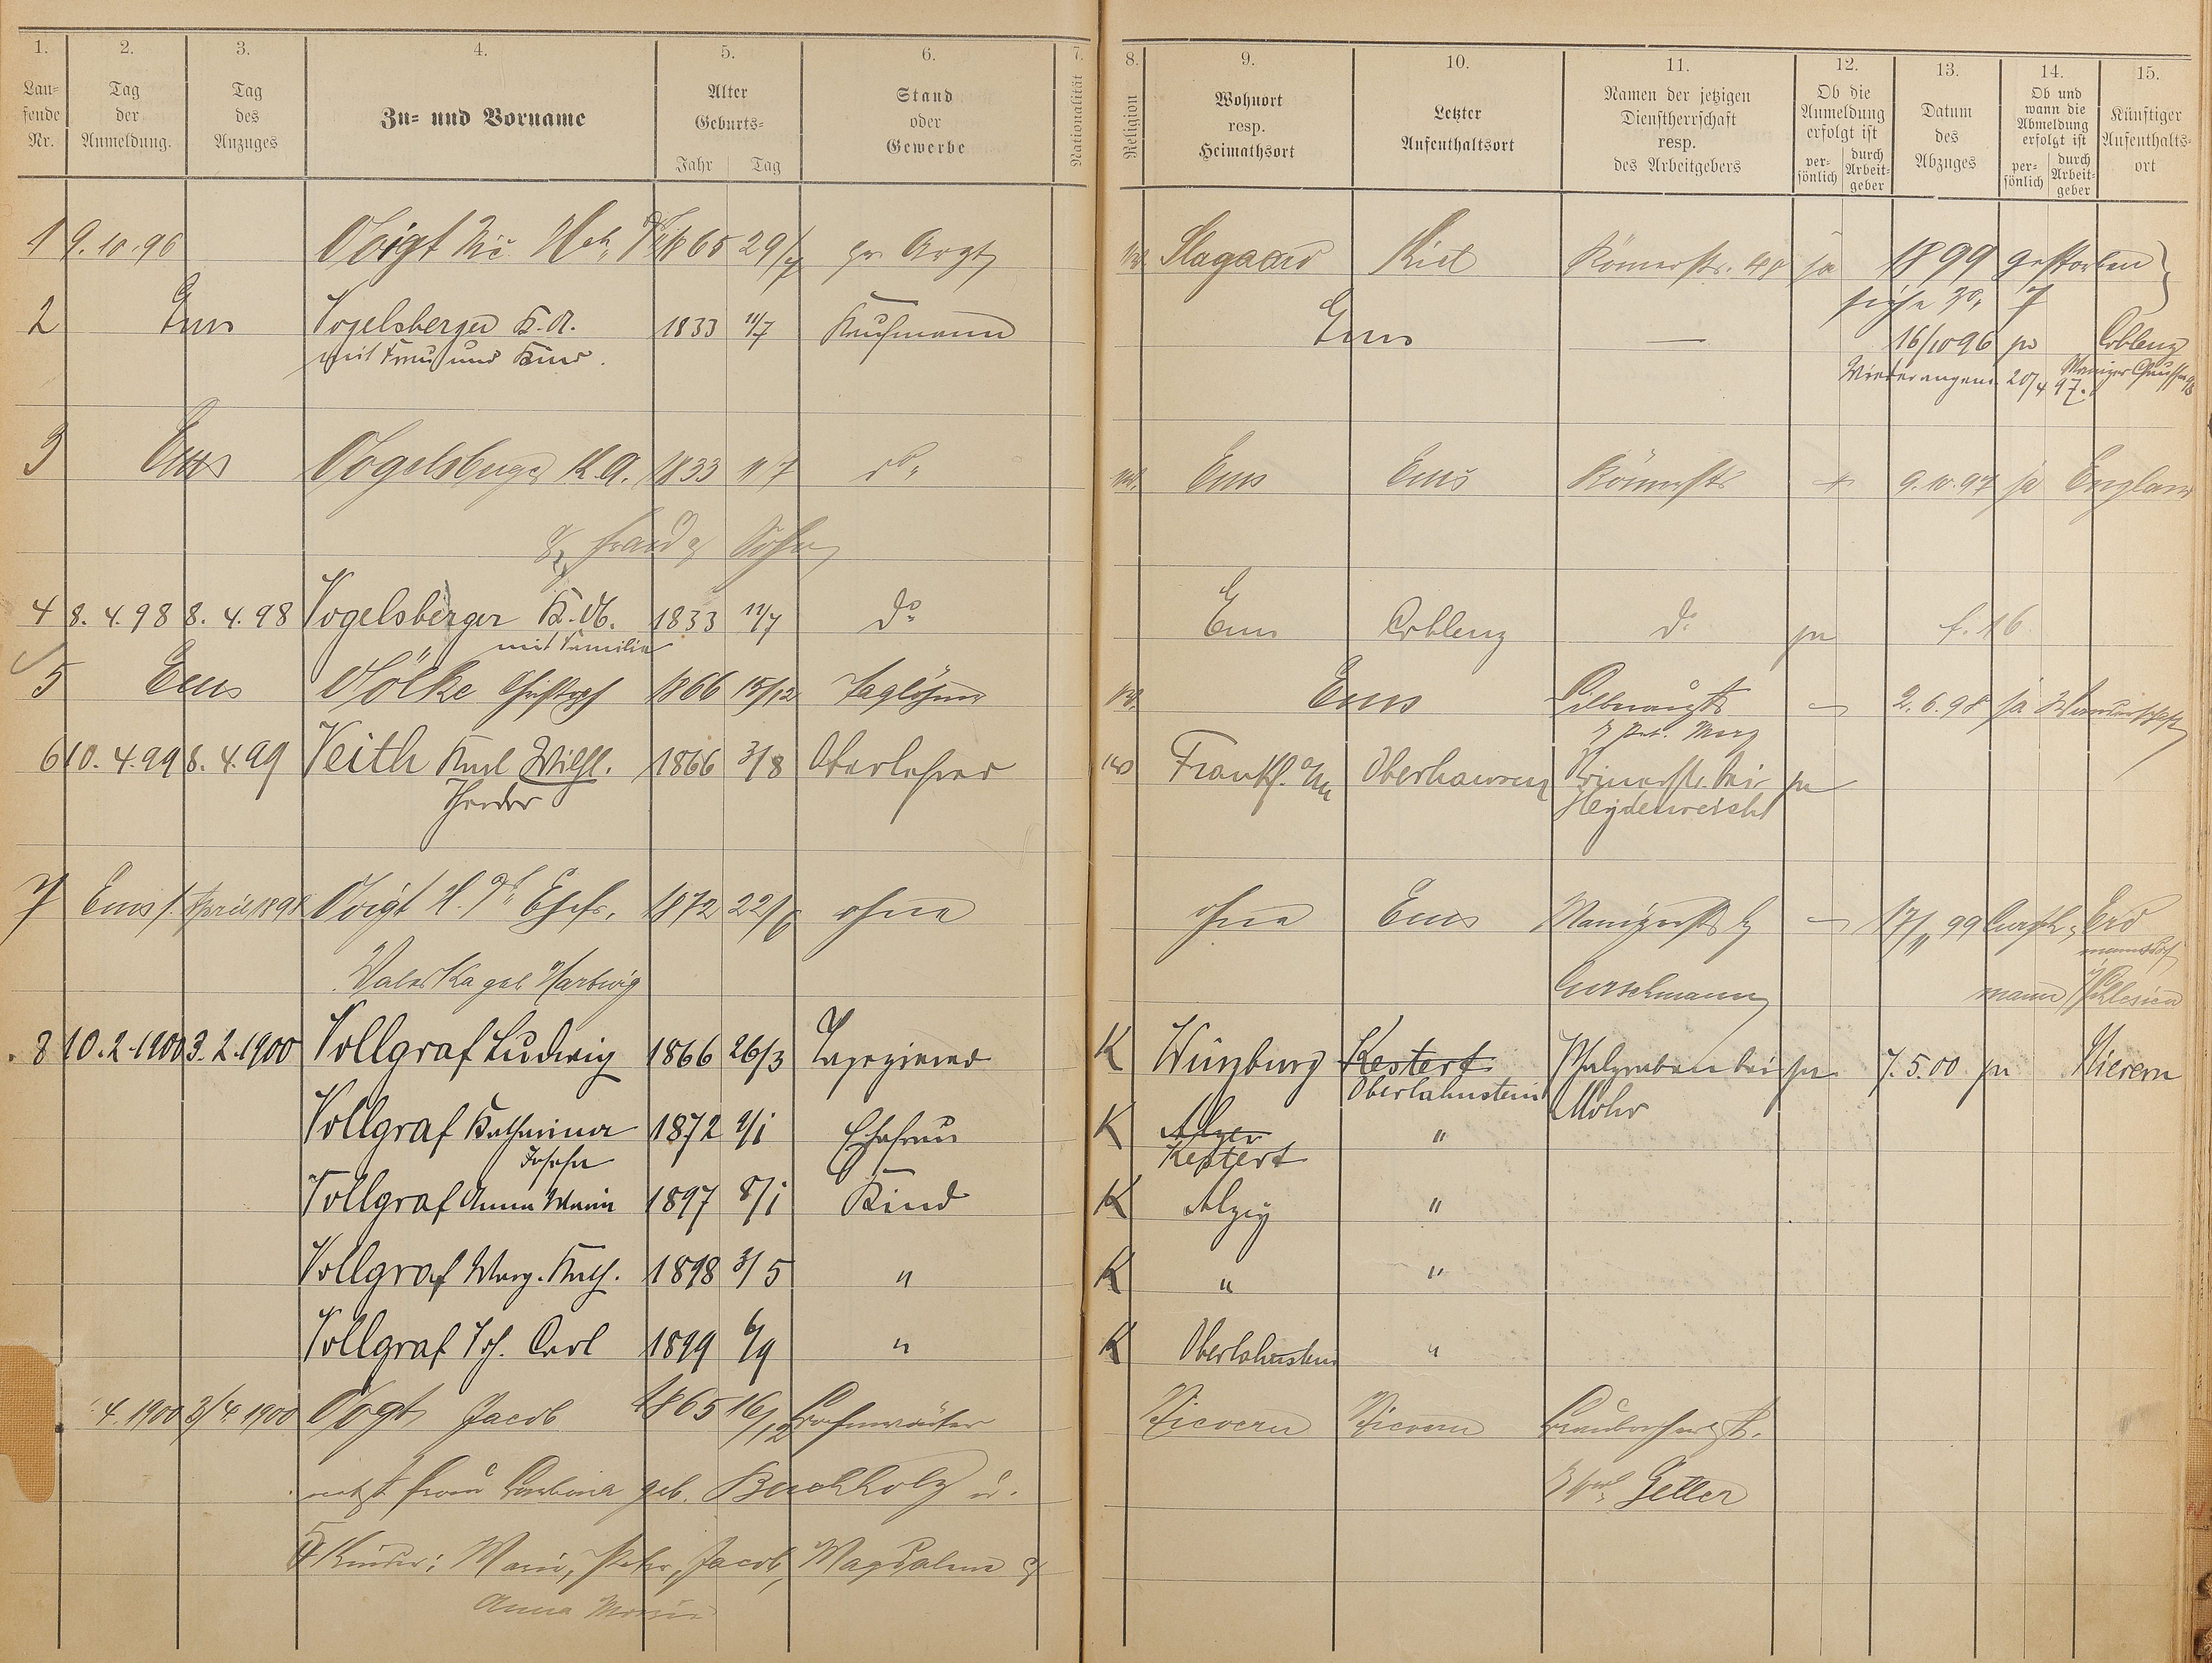 1. 2. 3. 4. 5. 6. 7. 8. 9. 10. 11. 12. 13. 14. 15.
Lau-
fende
Nr.
Tag
der
Anmeldung.
Tag
des
Anzuges
Zu- und Vorname
Alter
Geburts-
Jahr Tag
Stand
oder
Gewerbe
Nationalität
Religion
Wohnort
resp.
Heimathsort
Letzter
Aufenthaltsort
Namen der jetzigen
Dienstherrschaft
resp.
des Arbeitgebers
Ob die
Anmeldung
erfolgt ist
per-
sönlich
durch
Arbeit-
geber
Datum
des
Abzuges
Ob und
wann die
Abmeldung
erfolgt ist
per-
sönlich
durch
Arbeit-
geber
Künftiger
Aufenthalts-
ort
1 9.10.96 Voigt 1865 29/7 pr Arzt Kiel Römerstr. ja 1899 gestorben
siehe No. 7
2 Ems Vogelsberger K. A. 1833 11/7 Kaufmann Ems — 16/10 96 ja Coblenz
mit Frau und Kind. 20/4 97.
3 Ems Vogelsberger K. A. 1833 11/7 do Ems Ems Römerstr 9.10.97 ja England
Frau & Sohn
4 8. 4. 98 8. 4. 98 Vogelsberger K. A. 1833 11/7 do Ems Coblenz do ja f. 16
mit Familie
5 Ems Völke Christoph 1866 15/12 Taglöhner Ems Silberaustr 2.6.98 ja Wanderschaft
6 10. 4. 99 8. 4. 99 Veith Karl Wilh. 1866 3/8 Oberlehrer Frankf. a/M Oberhausen Römerstr. bei ja
Theodor Heydenreich
7 Ems 1. April 1898 Voigt H. Ehefr. 1872 22/6 ohne ohne Ems 17/11 99 Erd
mannsdorf
Valeska geb. Hartwig Curschmann mann i/ Schlesien
8 10. 2. 1900 3. 2. 1900 Vollgraf Ludwig 1866 26/3 Tapezierer K Würzburg Kestert Pfahlgraben bei ja 7. 5. 00 ja Nievern
Oberlahnstein Mohr
Vollgraf Katharina 1872 9/1 Ehefrau K Alzey "
Josefa Kestert
Vollgraf Anna Maria 1897 8/1 Kind K Alzey "
Vollgraf Marg. Kath. 1898 3/5 " K " "
Vollgraf Joh. Carl 1899 6/9 " K Oberlahnstein "
4. 1900 3/4 1900 Vogt Jacob 1865 16/12 Nievern Nievern
nebst Frau geb. Buchholz u.
5 Kinder: Maria, Peter, Jacob, Magdalena &
Anna Maria